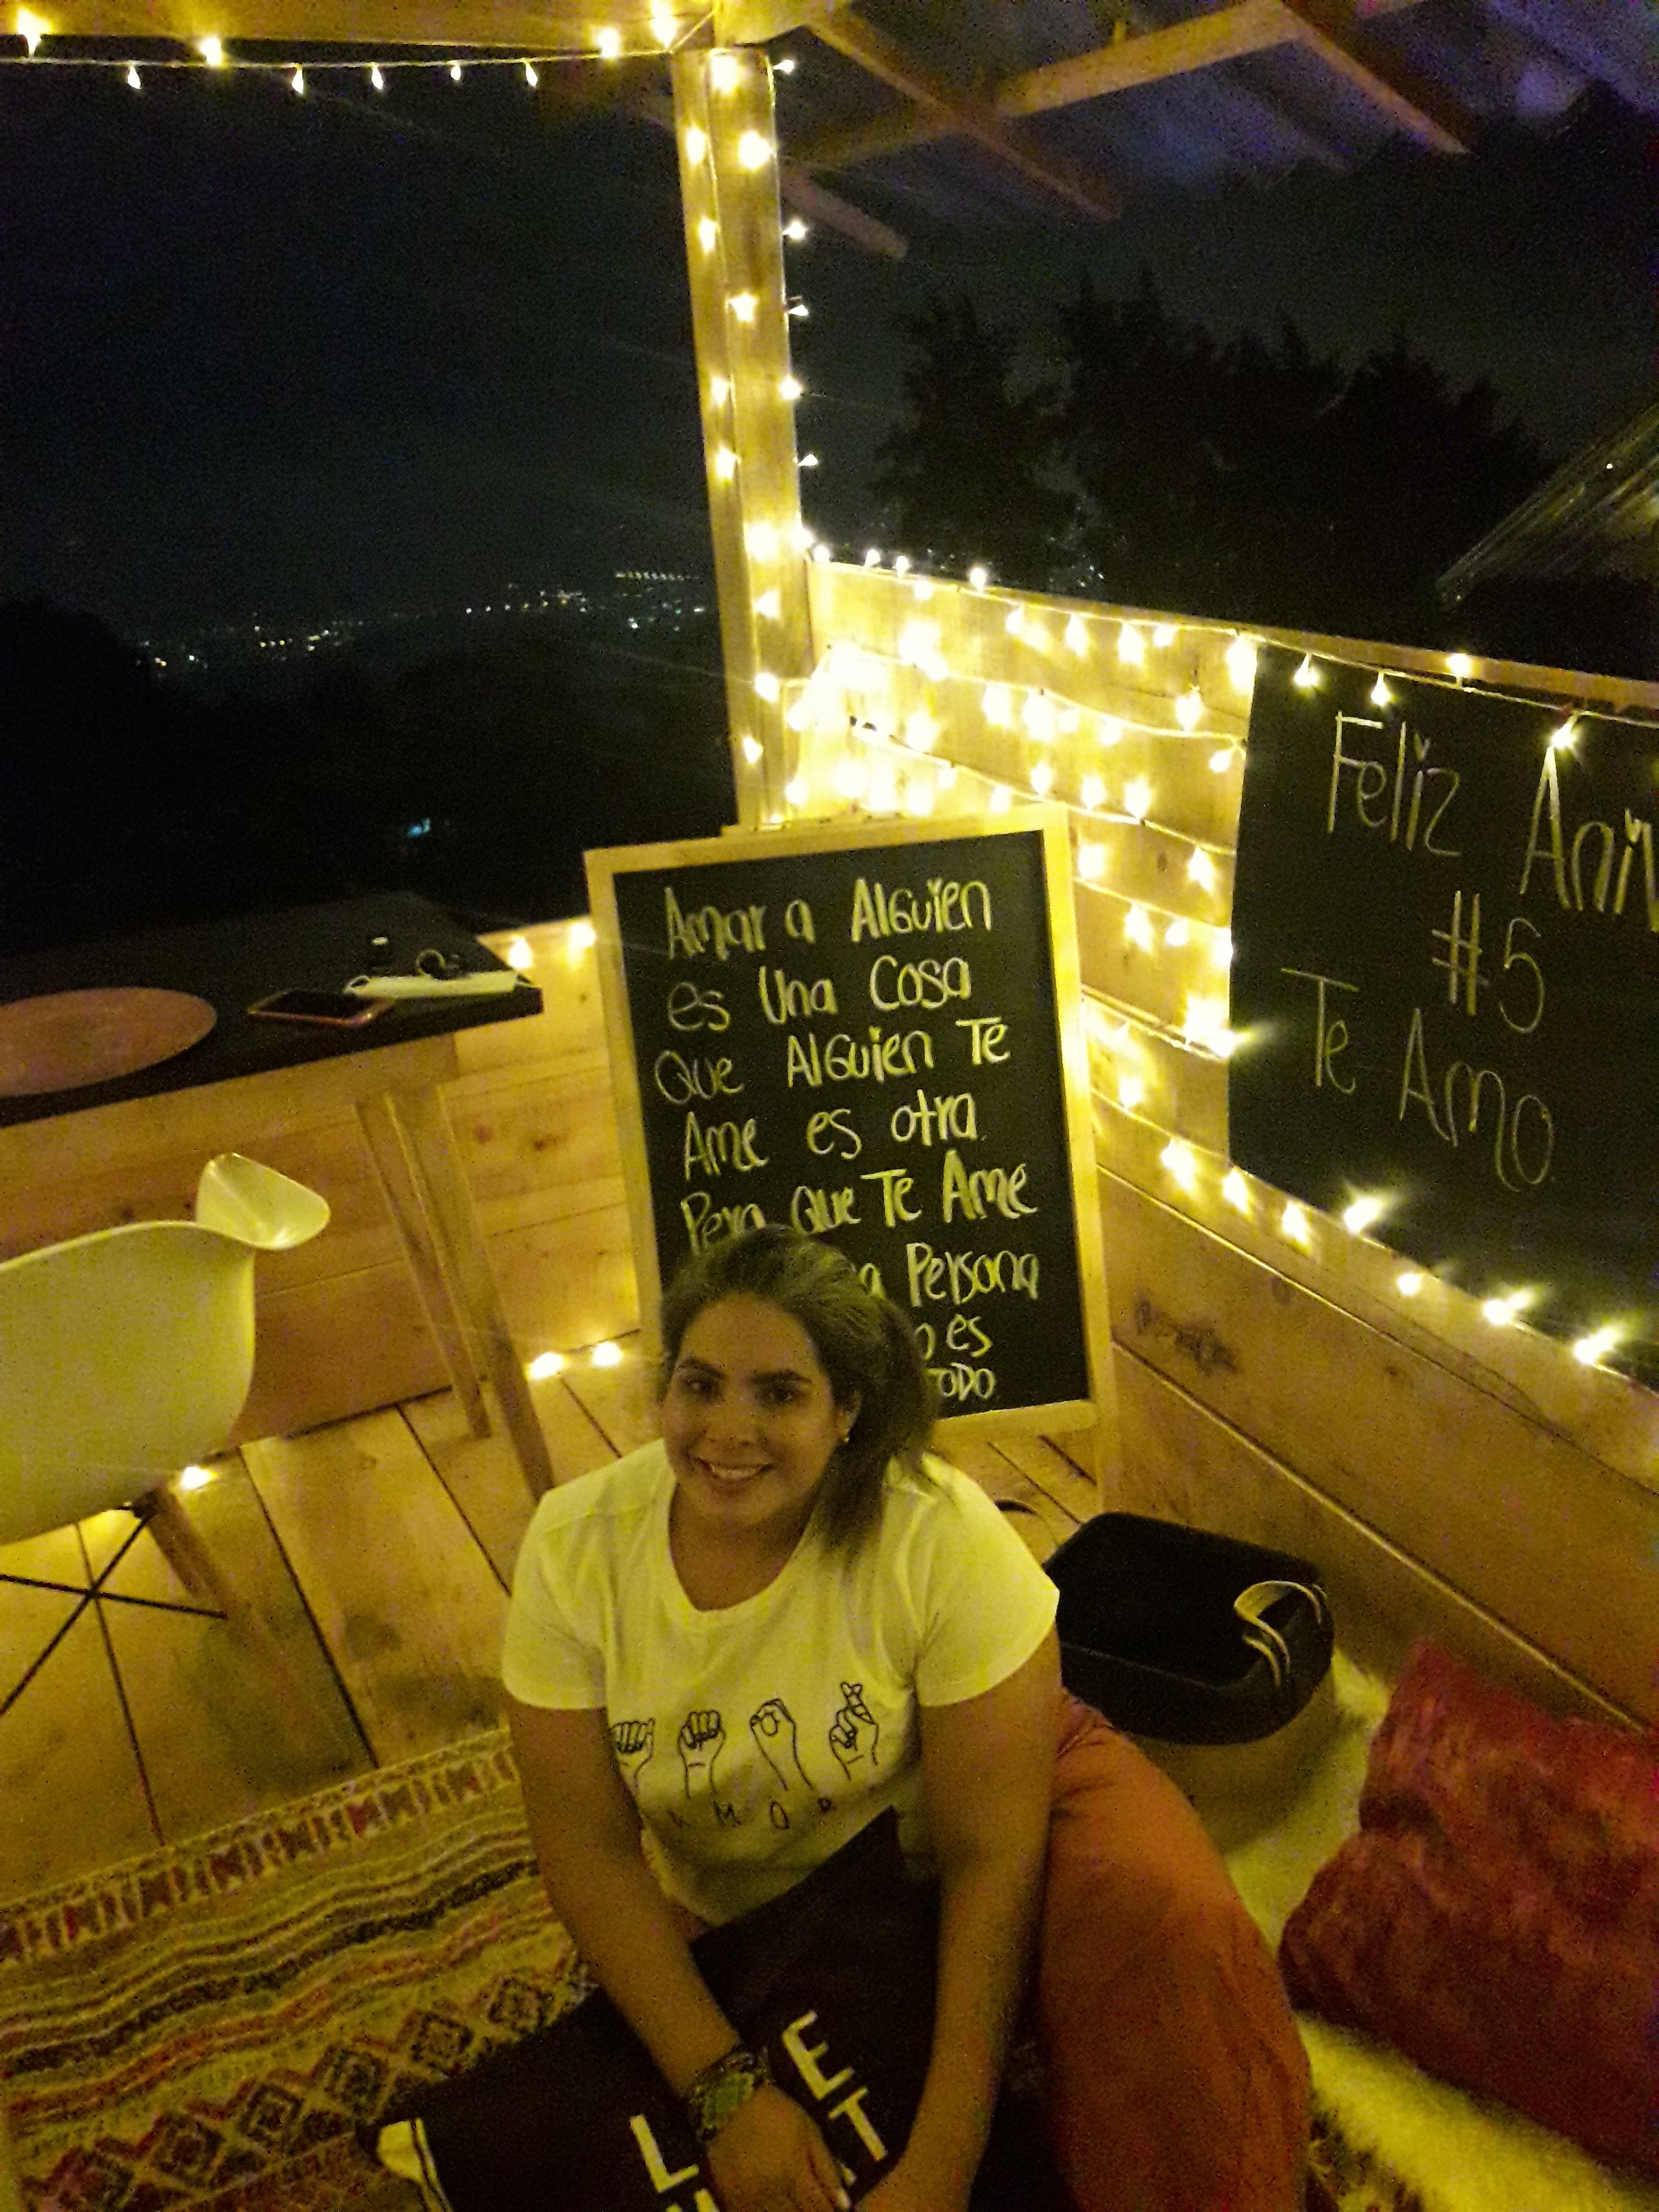 Amar a Alguien
es Una Cosa
Que Alguien Te
Ame es otra
Pero Que Te Ame
Persona
es
TODO
Feliz
#5
Te Amo
AMOR